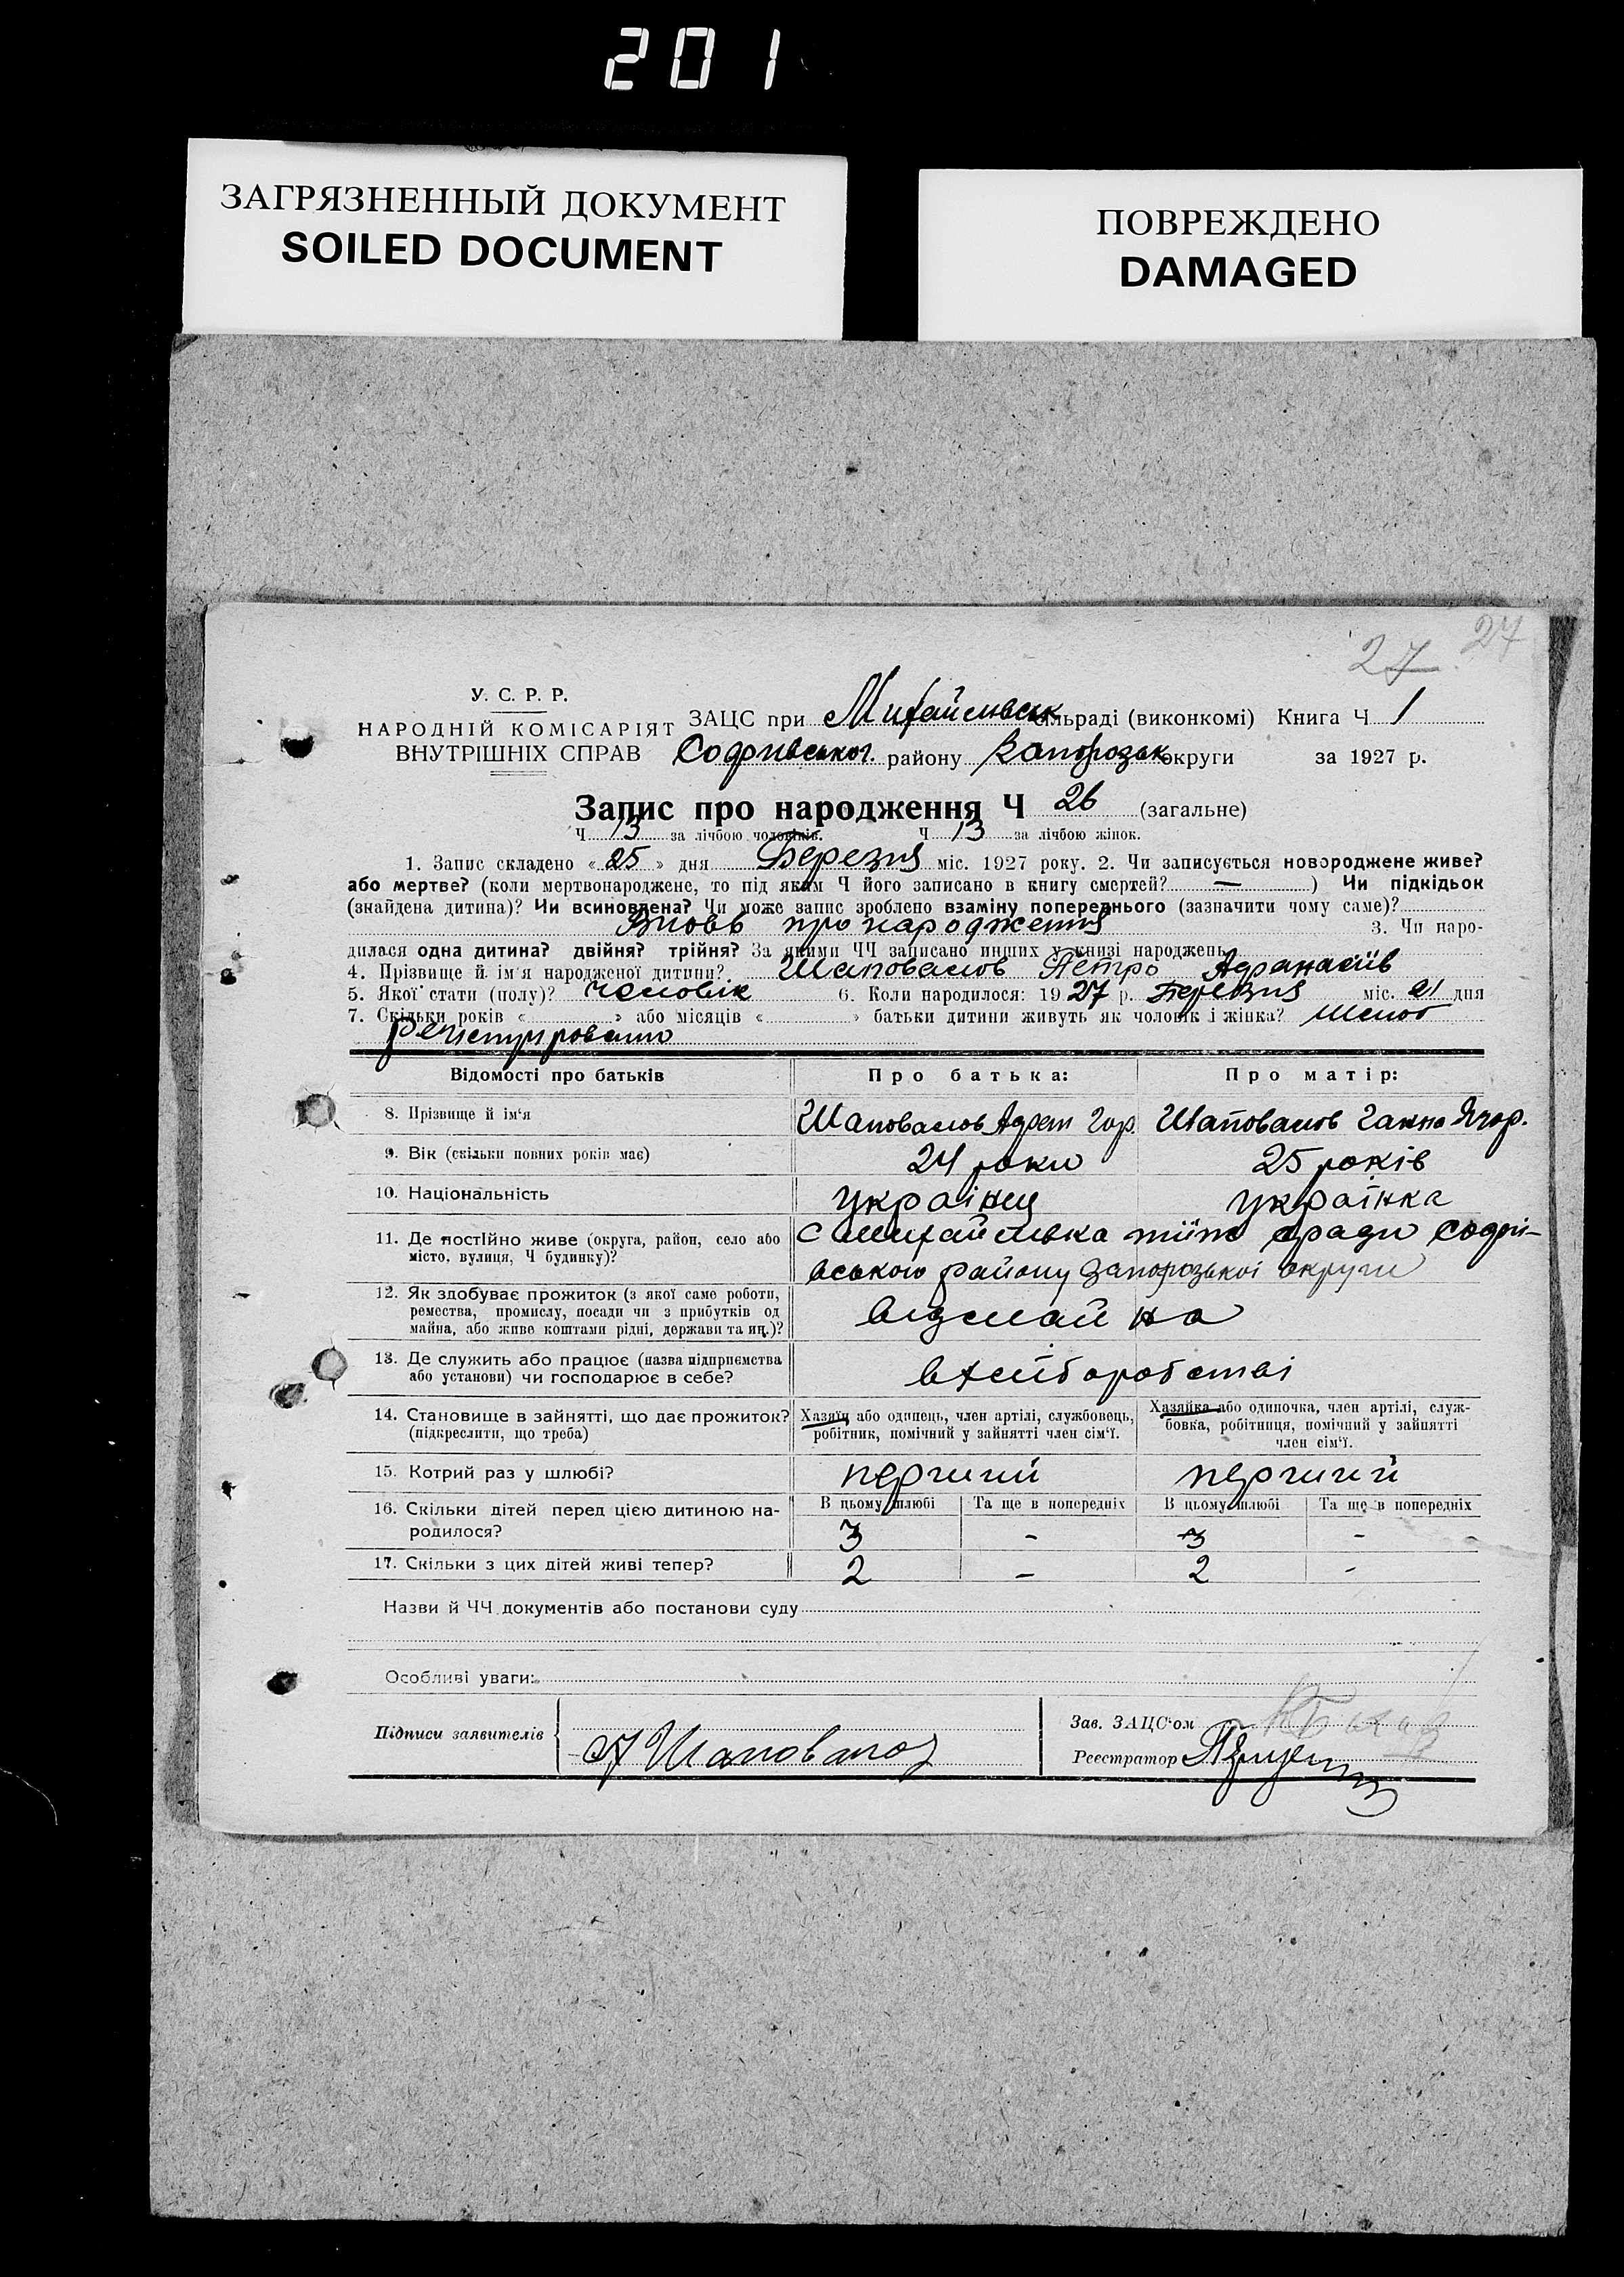 201
ЗАГРЯЗНЕННЫЙ ДОКУМЕНТ
SOILED DOCUMENT
ПОВРЕЖДЕНО
DAMAGED
27 27
У. С. Р. Р.
НАРОДНІЙ КОМІСАРІЯТ
ВНУТРІШНІХ СПРАВ
ЗАЦС при Михайлівськ сільраді (виконкомі) Книга Ч 1
Софіївськог. району Запорозьк округи за 1927 р.
Запис про народження Ч 26 (загальне)
Ч 13 за лічбою чоловіків. Ч 13 за лічбою жінок.
1. Запис складено « 25 » дня Березня міс. 1927 року. 2. Чи записується новороджене живе?
або мертве? (коли мертвонароджене, то під яким Ч його записано в книгу смертей? — ) Чи підкідьок
(знайдена дитина)? Чи всиновлена? Чи може запис зроблено взаміну попереднього (зазначити чому саме)?
Вновь про народження 3. Чи наро-
дилася одна дитина? двійня? трійня? За якими ЧЧ записано инших у книзі народжень
4. Прізвище й ім'я народженої дитини? Шаповалов Петро Афанасіїв
5. Якої стати (полу)? Чоловік 6. Коли народилося: 19 27 р. Березня міс. 21 дня
7. Скільки років « » або місяців « » батьки дитини живуть як чоловік і жінка? Шлюб
регистрировано
Відомості про батьків Про батька: Про матір:
8. Прізвище й ім'я Шаповалов Афан Гор. Шаповалов Ганна Ягор.
9. Вік (скільки повних років має) 24 роки 25 років
10. Національність Українец Українка
11. Де постійно живе (округа, район, село або
місто, вулиця, Ч будинку)?
с Михайлівка тіїж сради Софії-
вського району Запорозької округи
12. Як здобуває прожиток (з якої саме роботи,
ремества, промислу, посади чи з прибутків од
майна, або живе коштами рідні, держави та ин.)?
13. Де служить або працює (назва підприємства
або установи) чи господарює в себе?
вхліборобстві
14. Становище в зайнятті, що дає прожиток?
(підкреслити, що треба)
Хазяїн або одинець, член артілі, службовець,
робітник, помічний у зайнятті член сім'ї.
Хазяйка або одиночка, член артілі, служ-
бовка, робітниця, помічний у зайнятті
член сім'ї.
15. Котрий раз у шлюбі? перчиий перчиий
16. Скільки дітей перед цією дитиною на-
родилося?
В цьому шлюбі Та ще в попередніх В цьому шлюбі Та ще в попередніх
3 - 3 -
17. Скільки з цих дітей живі тепер? 2 - 2 -
Назви й ЧЧ документів або постанови суду
Особливі уваги:
Підписи заявителів
А Шаповалов
Зав. ЗАЦС'ом
Реєстратор